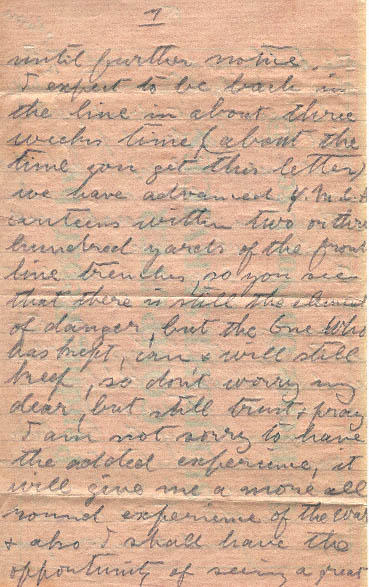 7
until further notice.
I expect to be back in
the line in about three
weeks time, (about the
time you get this letter)
we have advanced Y.M.C.A
canteens within two or three
hundred yards of the front
line trenches, so you see
that there is still the element
of danger, but the One Who
has kept, can & will still
keep, so don't worry my
dear, but still trust & pray
I am not sorry to have
the added experience, it
will give me a more all
round experience of the War
& also I shall have the
opportunity of seeing a great